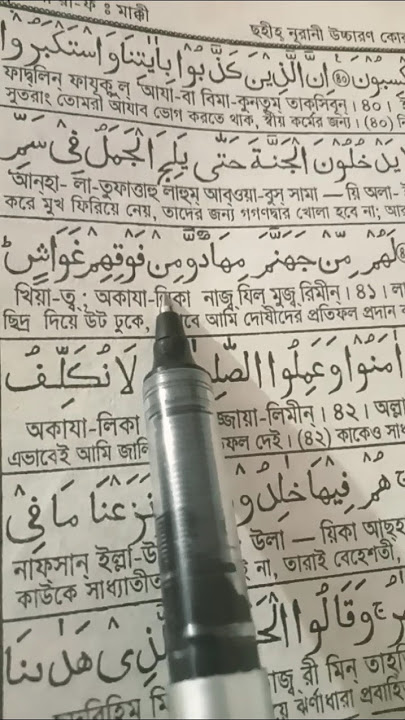 মাক্কী ছহীহ্ নূরানী উচ্চারণ কোর
كْسِبُوْنَ ﴿٤٠﴾ اِنَّ الَّذِيْنَ كَذَّبُوْا بِاٰيٰتِنَا وَاسْتَكْبَرُوْا
ফাদ্বলিন্ ফাযূক্বুল্ 'আযা-বা বিমা-কুনতুম্ তাক্সিবূন্। ৪০।
সুতরাং তোমরা আযাব ভোগ করতে থাক, স্বীয় কর্মের জন্য। (৪০)
يَدْخُلُوْنَ الْجَنَّةَ حَتّٰى يَلِجَ الْجَمَلُ فِيْ سَمِّ
'আন্হা- লা-তুফাত্তাহু লাহুম্ আব্ওয়া-বুস্ সামা — য়ি অলা-
করে মুখ ফিরিয়ে নেয়, তাদের জন্য গগণদ্বার খোলা হবে না; আর
لَهُمْ مِّنْ جَهَنَّمَ مِهَادٌ وَّمِنْ فَوْقِهِمْ غَوَاشٍ ط
খিয়া-ত্ব্; অকাযা-লিকা নাজ্ব্ যিল্ মুজ্ব্ রিমীন্। ৪১।
ছিদ্র দিয়ে উট ঢুকে, বে আমি দোষীদের প্রতিফল প্রদান
اٰمَنُوْا وَعَمِلُوا الصّٰلِ لَا نُكَلِّفُ
অকাযা-লিকা জ্জোয়া-লিমীন্। ৪২। অল্লা
এভাবেই আমি জালি ফল দেই। (৪২) কাকেও
هُمْ فِيْهَا خٰلِدُ وَنَزَعْنَا مَا فِيْ
নাফ্সান্ ইল্লা-উ উলা — য়িকা আছ্হ
কাউকে সাধ্যাতীত না, তারাই বেহেশতী,
وَقَالُوا الْحَ الَّذِيْ هَدٰىنَا
জ্ব্ রী মিন্ তাহ্তি
ঝর্ণাধারা প্রবাহি